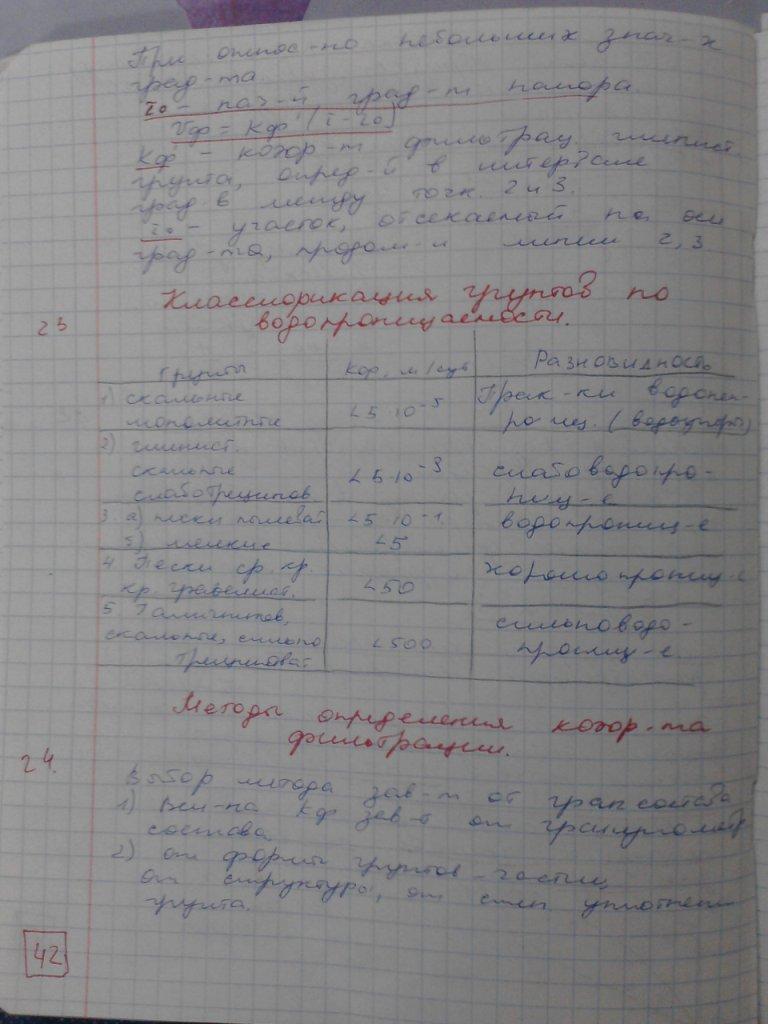 При относ-но небольших знач-х
град-та.
io - нач-й град-т напора.
Vф = Кф (i - io)
Кф - коэф-т фильтрац. глинист.
грунта, опред-й в интервале
град. в между точк. 2 и 3.
io - участок, отсекаемый на оси
град-та, продолж-й линии 2, 3
23 Классификация грунтов по
водопроницаемости.
Грунты Кф, м/сут Разновидность
1) скальные монолитные <5·10⁻⁵ Прак-ки водонеп-
рониц. (водоупоры)
2) глинист.
скальные <5·10⁻³ слабоводопро-
слаботрещинов. ниц-е
3. а) пески пылеват <5·10⁻¹ водопрониц-е
б) мелкие <5
4 Пески ср. кр. хорошо прониц-е
кр. гравелист. <50
5 Галечников, сильново до-
скальные, сильно <500 прониц-е.
трещиноват
Методы определения коэф-та
фильтрации.
24.
Выбор метода зав-т от гран состава
1) Вел-на Кф зав-т от гранулометр
состава.
2) от формы грунтов-частиц,
от структуры, от степ. уплотнен
грунта.
42